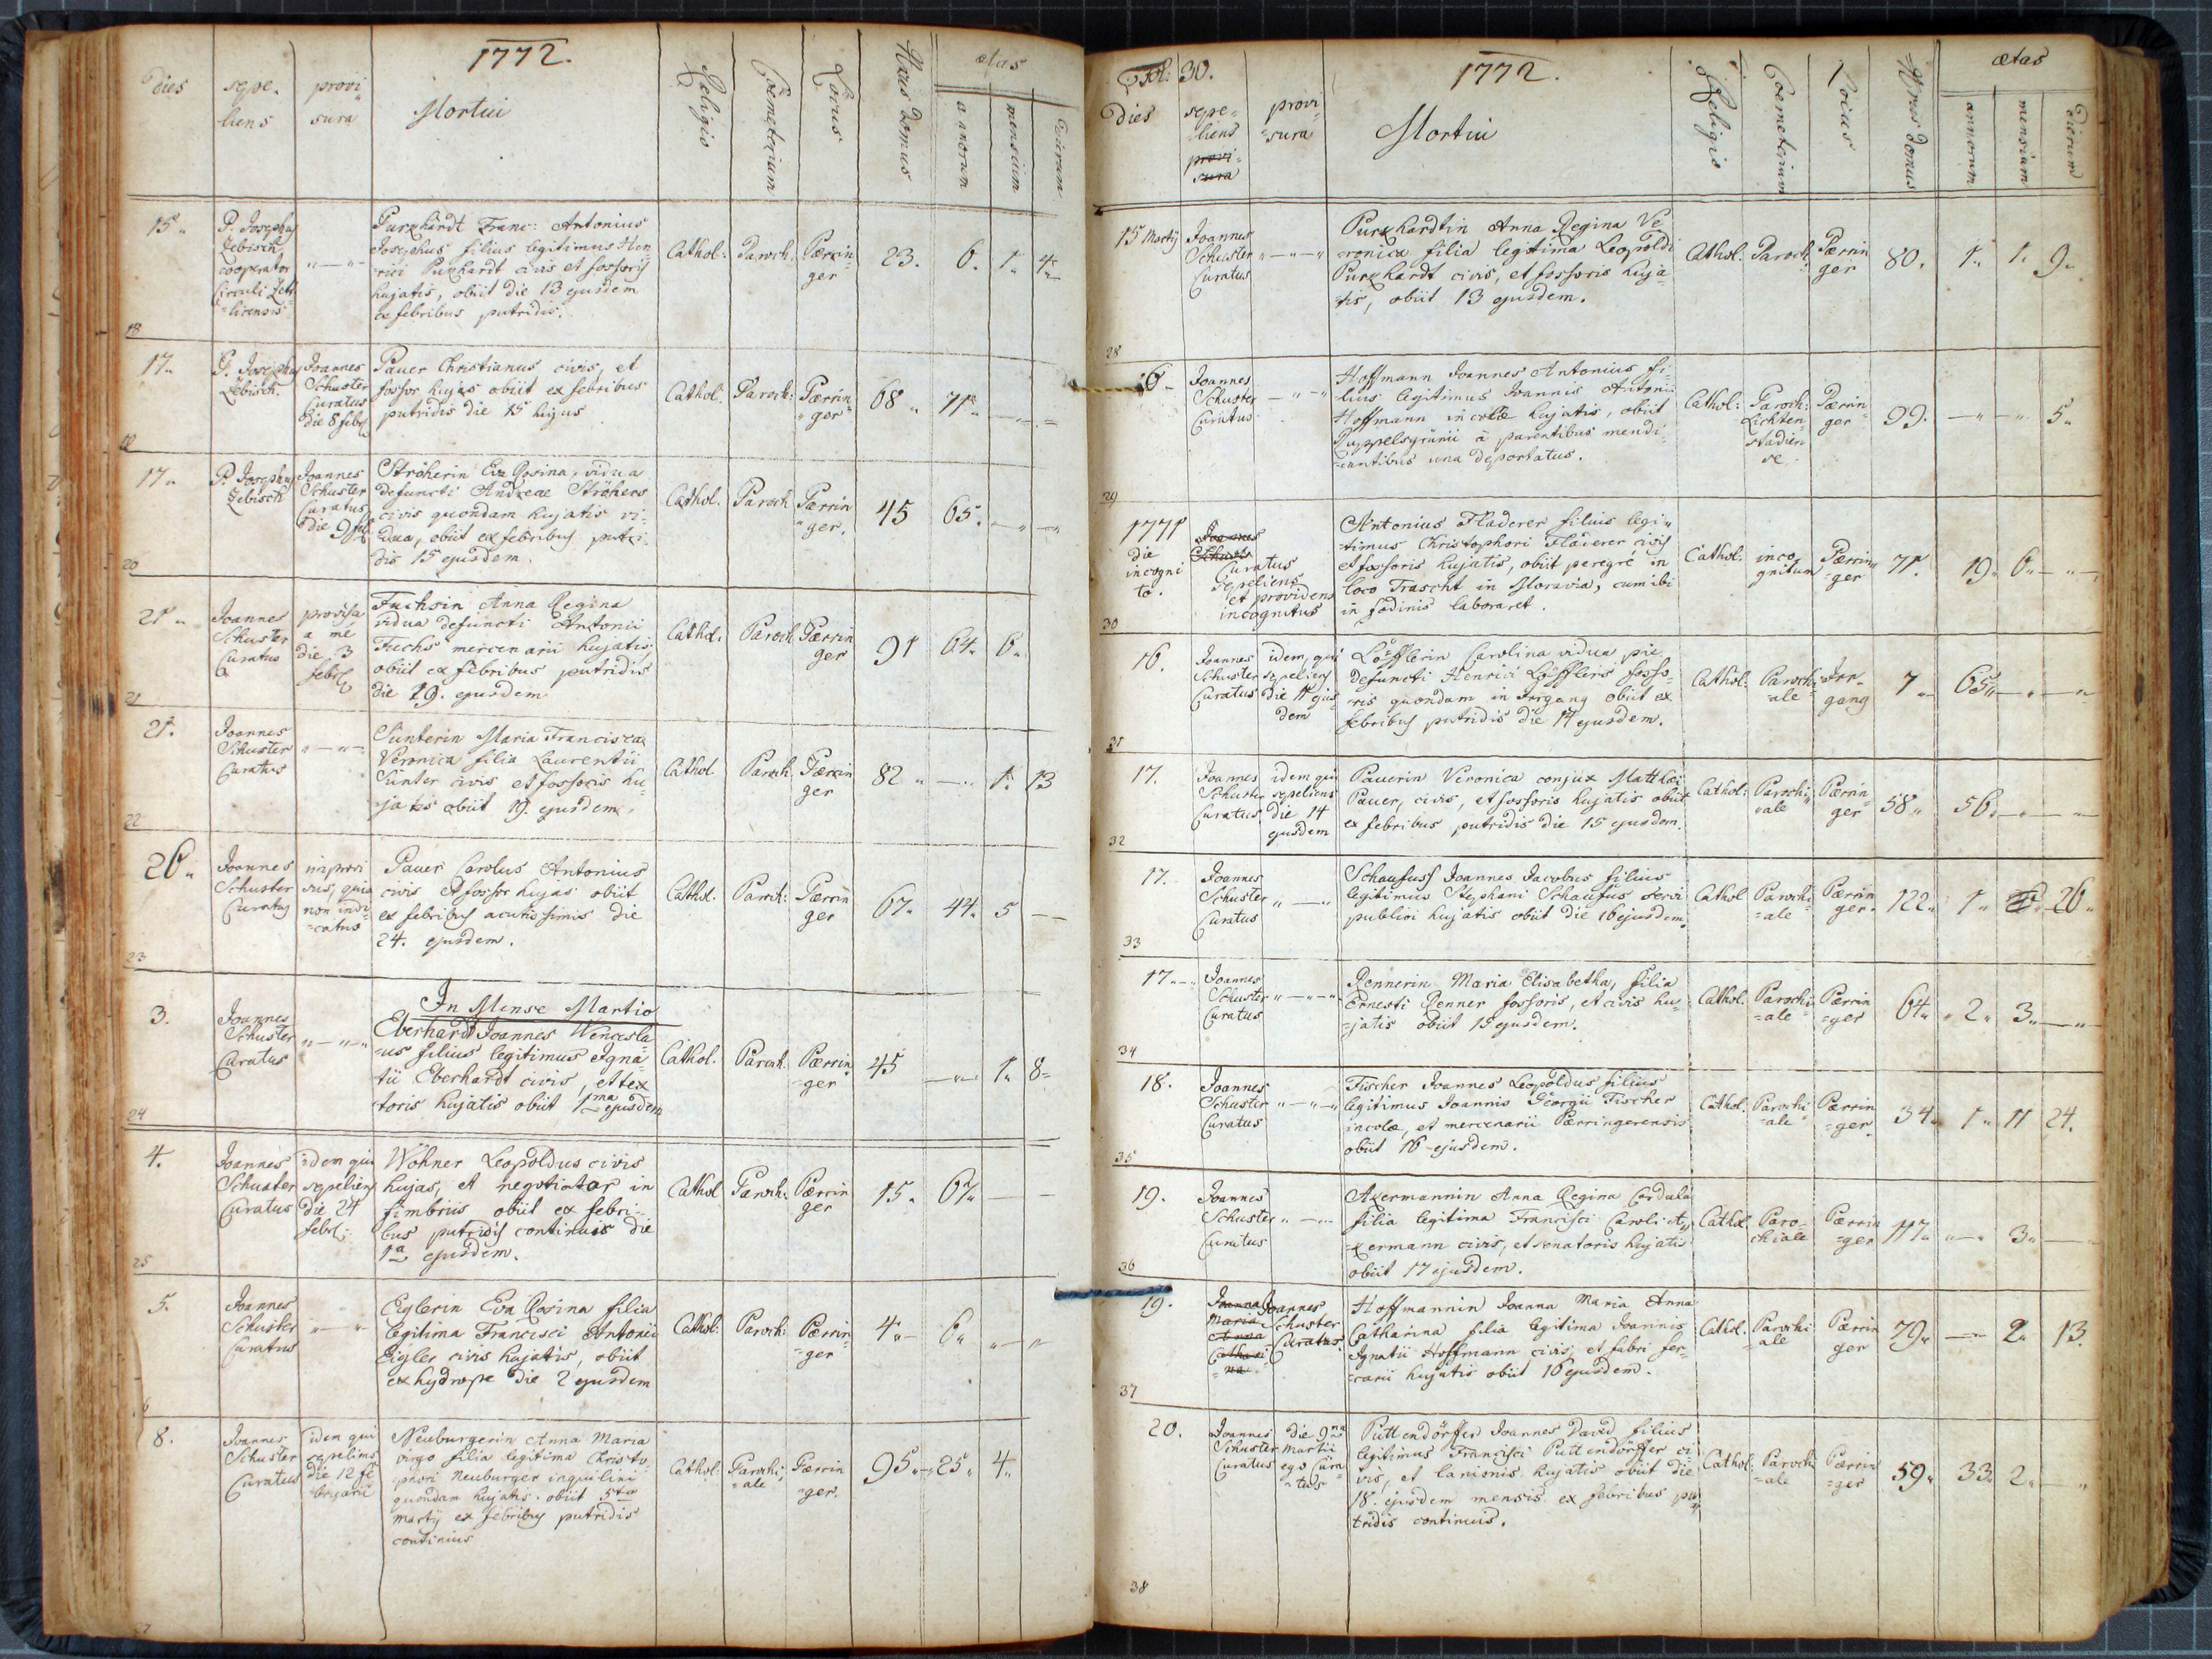 1772.
dies
sepe-
liens
provi
sura
Mortui
Religio
Coemeterium
Locus
Nrus Domus
ætas
annorum
mensium
dierum
15.
P. Josephus
Zebisch
cooperator
Circuli
Purkhardt Franc: Antonius
Josephus filius legitimus Hen-
rici Purkhardt civis et fossoris
hujatis, obiit die 13 ejusdem
ex febribus putridis.
Cathol: Paroch. Pærrin-
ger
23. 6. 1. 4.
18
17.
P. Josephus
Zebisch.
Joannes
Schuster
Curatus
die 8 febr
Pauer Christianus civis, et
fossor hujas obiit ex febribus
putridis die 15 hujus
Cathol. Paroch: Pærrin
ger
68 71.
19
17.
P. Josephus
Zebisch
Joannes
Schuster
Curatus
die 9 feb
Ströherin Eva Rosina, vidua
defuncti Andreae Ströhers
civis quondam hujatis vi-
dua, obiit ex febribus putri-
dis 15 ejusdem.
Cathol. Paroch Pærrin
ger.
45 65.
20
21.
Joannes
Schuster
Curatus
provisa
a me
die 3
febr
Fuchsin Anna Regina
vidua defuncti Antonii
Fuchs mercenarii hujatis,
obiit ex febribus putridis
die 19. ejusdem
Cathol. Paroch Pærrin
ger
91 64. 6.
21
21.
Joannes
Schuster
Curatus
Sünterin Maria Francisca
Veronica filia Laurentii
Sünter civis et fossoris hu-
jatis obiit 19. ejusdem.
Cathol Paroch. Pærrin
ger
82 1. 13
22
26.
Joannes
Schuster
Curatus
improvi
sus, quia
non indi-
catus
Pauer Carolus Antonius
civis et fossor hujas obiit
ex febribus acutissimis die
24. ejusdem.
Cathol. Paroch: Pærrin
ger
67. 44. 5
23
In Mense Martio
3.
Joannes
Schuster
Curatus
Eberhardt Joannes Wencesla-
us filius legitimus Igna-
tii Eberhardt civis, et tex
toris hujatis obiit 1ma ejusdem
Cathol. Paroch. Pærrin
ger
45 1. 8
24
4.
Joannes
Schuster
Curatus
idem qui
sepeliens
die 24
febr:
Wöhner Leopoldus civis
hujas, et negotiator in
fimbriis obiit ex febri-
bus putridis continuis die
1a ejusdem.
Cathol Paroch: Pærrin
ger
15. 67.
25
5.
Joannes
Schuster
Curatus
Eiglerin Eva Rosina filia
legitima Francisci Antonii
Eigler civis hujatis, obiit
ex hydrope die 2 ejusdem
Cathol: Paroch: Pærrin
ger
4. 6.
8.
Joannes
Schuster
Curatus
idem qui
sepeliens
die 12 fe
bruarii
Neuburgerin Anna Maria
virgo filia legitima Christo
phori Neuburger inquilini
quondam hujatis. obiit 5ta
Martii ex febribus putridis
continuis
Cathol: Parochi
ale
Pærrin
ger.
95. 25. 4.
27
Fol: 30.
1772.
dies
sepe-
liens
provi-
sura
provi-
sura
Mortui
Religio
Coemeterium
Locus
Nrus Domus
ætas
annorum
mensium
dierum
15 Martij
Joannes
Schuster
Curatus
Purkhardtin Anna Regina Ve-
ronica filia legitima Leopoldi
Purkhardt civis, et fossoris huja
tis, obiit 13 ejusdem.
Cathol: Paroch. Pærrin
ger
80. 1. 1. 9.
28
16
Joannes
Schuster
Curatus
Hoffmann Joannes Antonius fi-
lius legitimus Joannis Antonii
Hoffmann incolæ hujatis, obiit
Ruppelsgrünii à parentibus mendi-
cantibus una deportatus.
Cathol: Paroch:
Lichten-
stadien
se.
Pærrin-
ger
99. 5.
29
1771
die
incogni
to.
Joannes
Schuster
Curatus
sepeliens
et providens
incognitus
Antonius Fladerer filius legi-
timus Christophori Fladerer civis
et fossoris hujatis, obiit peregré in
loco Trascht in Moravia, cum ibi
in fodinis laboraret.
Cathol: inco
gnitum
Pærrin
ger
71. 19. 6.
30
16.
Joannes
Schuster
Curatus
idem, qui
sepeliens
die 11 ejus
dem
Löfflerin Carolina vidua pie
defuncti Henrici Löfflers fosso-
ris quondam in Irrgang obiit ex
febribus putridis die 14 ejusdem.
Cathol: Parochi
ale
Irr-
gang
7 65.
31
17.
Joannes
Schuster
Curatus
idem qui
sepeliens
die 14
ejusdem
Pauerin Veronica conjux Matthæi
Pauer, civis, et fossoris hujatis obiit
ex febribus putridis die 15 ejusdem.
Cathol: Parochi
ale
Pærrin-
ger
58 56.
32
17.
Joannes
Schuster
Curatus
Schaufuss Joannes Jacobus filius
legitimus Stephani Schaufus servi
publici hujatis obiit die 16 ejusdem.
Cathol Parochi-
ale
Pærrin
ger.
122. 1. 26.
33
17.
Joannes
Schuster
Curatus
Rennerin Maria Elisabetha, filia
Ernesti Renner fossoris, et civis hu-
jatis obiit 15 ejusdem.
Cathol. Parochi-
ale
Pærrin
ger
64. 2. 3.
34
18.
Joannes
Schuster
Curatus
Fischer Joannes Leopoldus filius
legitimus Joannis Georgii Fischer
incolæ, et mercenarii Pærringerensis
obiit 16 ejusdem.
Cathol. Parochi
ale
Pærrin
ger
34. 1. 11 24.
35
19.
Joannes
Schuster
Curatus
Akermannin Anna Regina Cordula
filia legitima Francisci Caroli A-
kermann civis, et senatoris hujatis
obiit 17 ejusdem.
Cathol. Paro-
chiale
Pærrin
ger
117. 3.
36
19.
Joanna
Maria
Anna
Cathari
na
Joannes
Schuster
Curatus.
Hoffmannin Joanna Maria Anna
Catharina filia legitima Joannis
Ignatii Hoffmann civis, et fabri fer-
rarii hujatis obiit 16 ejusdem.
Cathol. Parochi
ale
Pærrin
ger
79. 2. 13.
37
20.
Joannes
Schuster
Curatus
die 9na
Martii
ego Cura
tus
Puttendörffer Joannes David filius
legitimus Francisci Puttendörffer ci
vis, et lanionis hujatis obiit die
18. ejusdem mensis ex febribus pu
tridis continuis.
Cathol. Parochi
ale
Pærrin
ger
59. 33. 2.
38